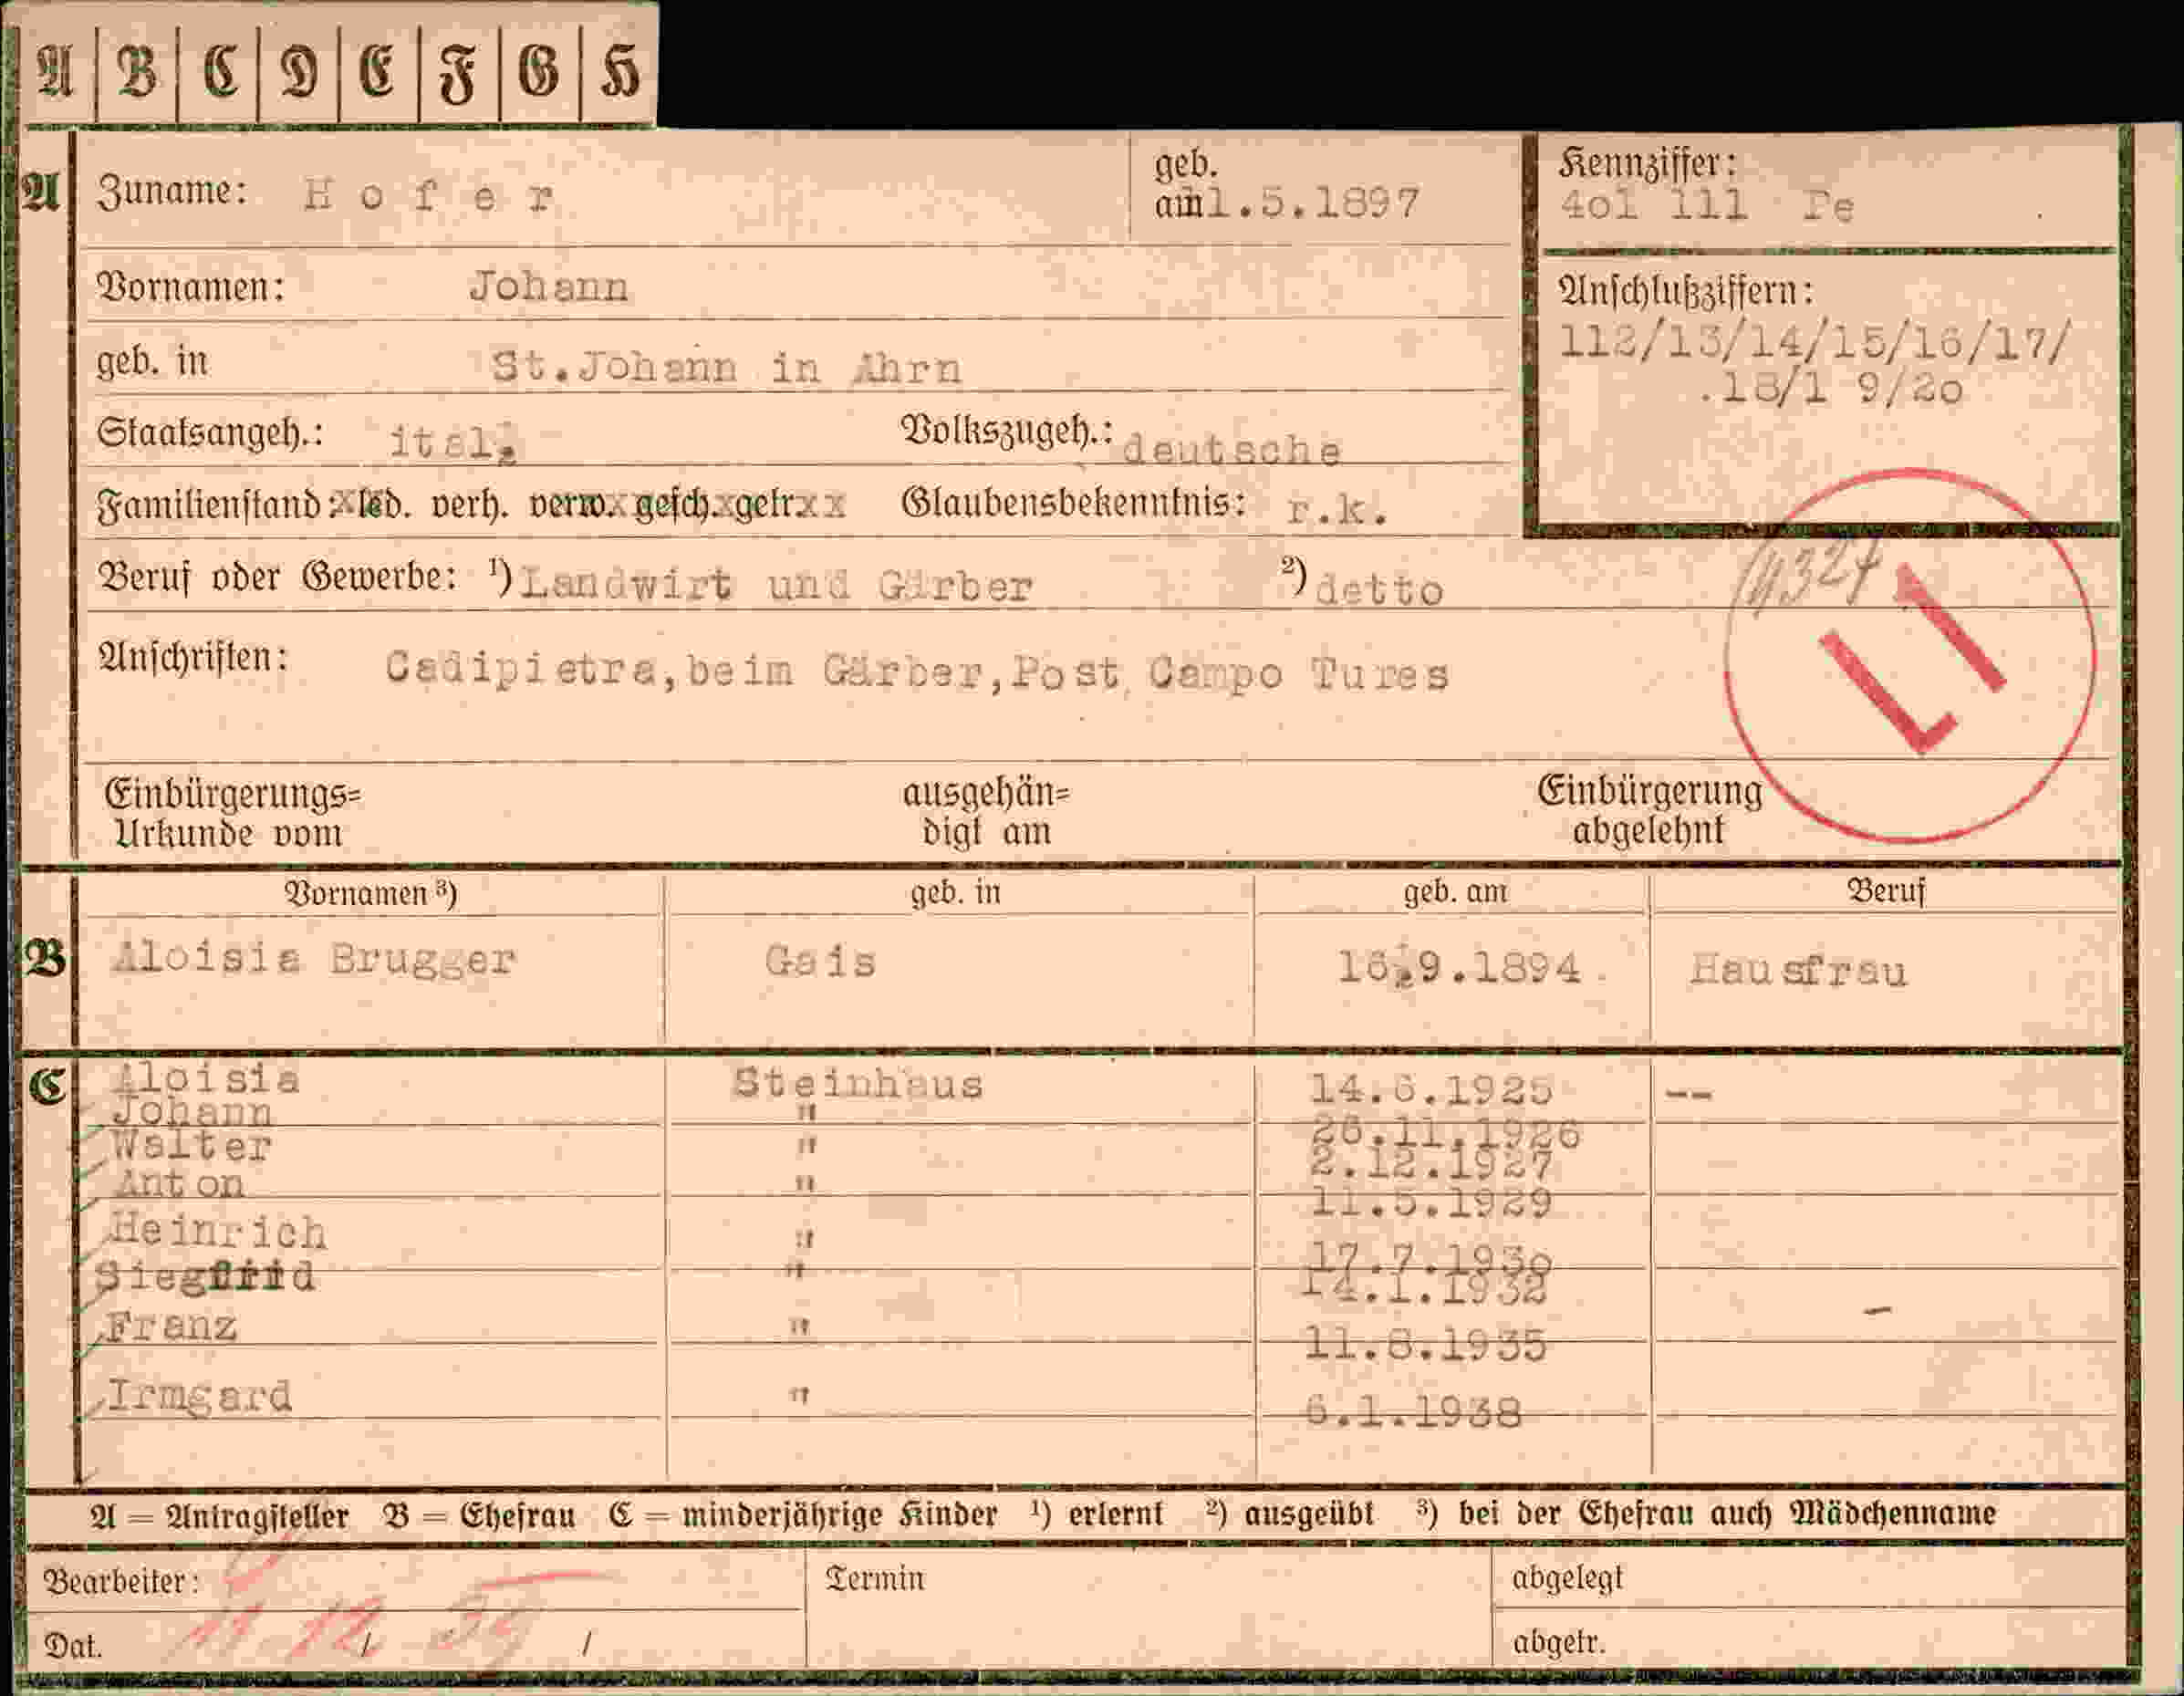 A B C D E F G H
A Zuname: Hofer geb. am 1.5.1897
Kennziffer:
4ol 111 Pe
Vornamen: Johann
Anschlußziffern:
112/13/14/15/16/17/
.18/1 9/2o
geb. in St.Johann in Ahrn
Staatsangeh.: ital. Volkszugeh.: deutsche
Familienstand: led. verh. verw. gesch. getr. Glaubensbekenntnis: r.k.
Beruf oder Gewerbe: ¹) Landwirt und Gärber ²) detto
Anschriften: Cadipietra, beim Gärber, Post Campo Tures
Einbürgerungs=
Urkunde vom
ausgehän=
digt am
Einbürgerung
abgelehnt
Vornamen ³) geb. in geb. am Beruf
B Aloisia Brugger Gais 16.9.1894. Hausfrau
C Aloisia Steinhaus 14.6.1925 --
Johann " 26.11.1926
Walter " 2.12.1927
Anton " 11.5.1929
Heinrich " 17.7.193o
Siegfrid " 14.1.1932
Franz " 11.8.1935 -
Irmgard " 6.1.1938
A = Antragsteller B = Ehefrau C = minderjährige Kinder ¹) erlernt ²) ausgeübt ³) bei der Ehefrau auch Mädchenname
Bearbeiter: Termin abgelegt
Dat. 11. 12 / 39 / abgetr.